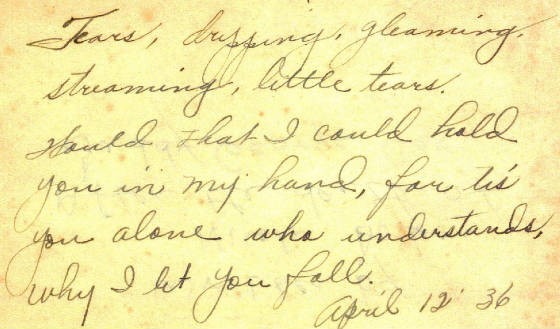 Tears, dripping, gleaming,
streaming, little tears.
Would that I could hold
you in my hand, for tis'
you alone who understands,
why I let you fall.
April 12' 36